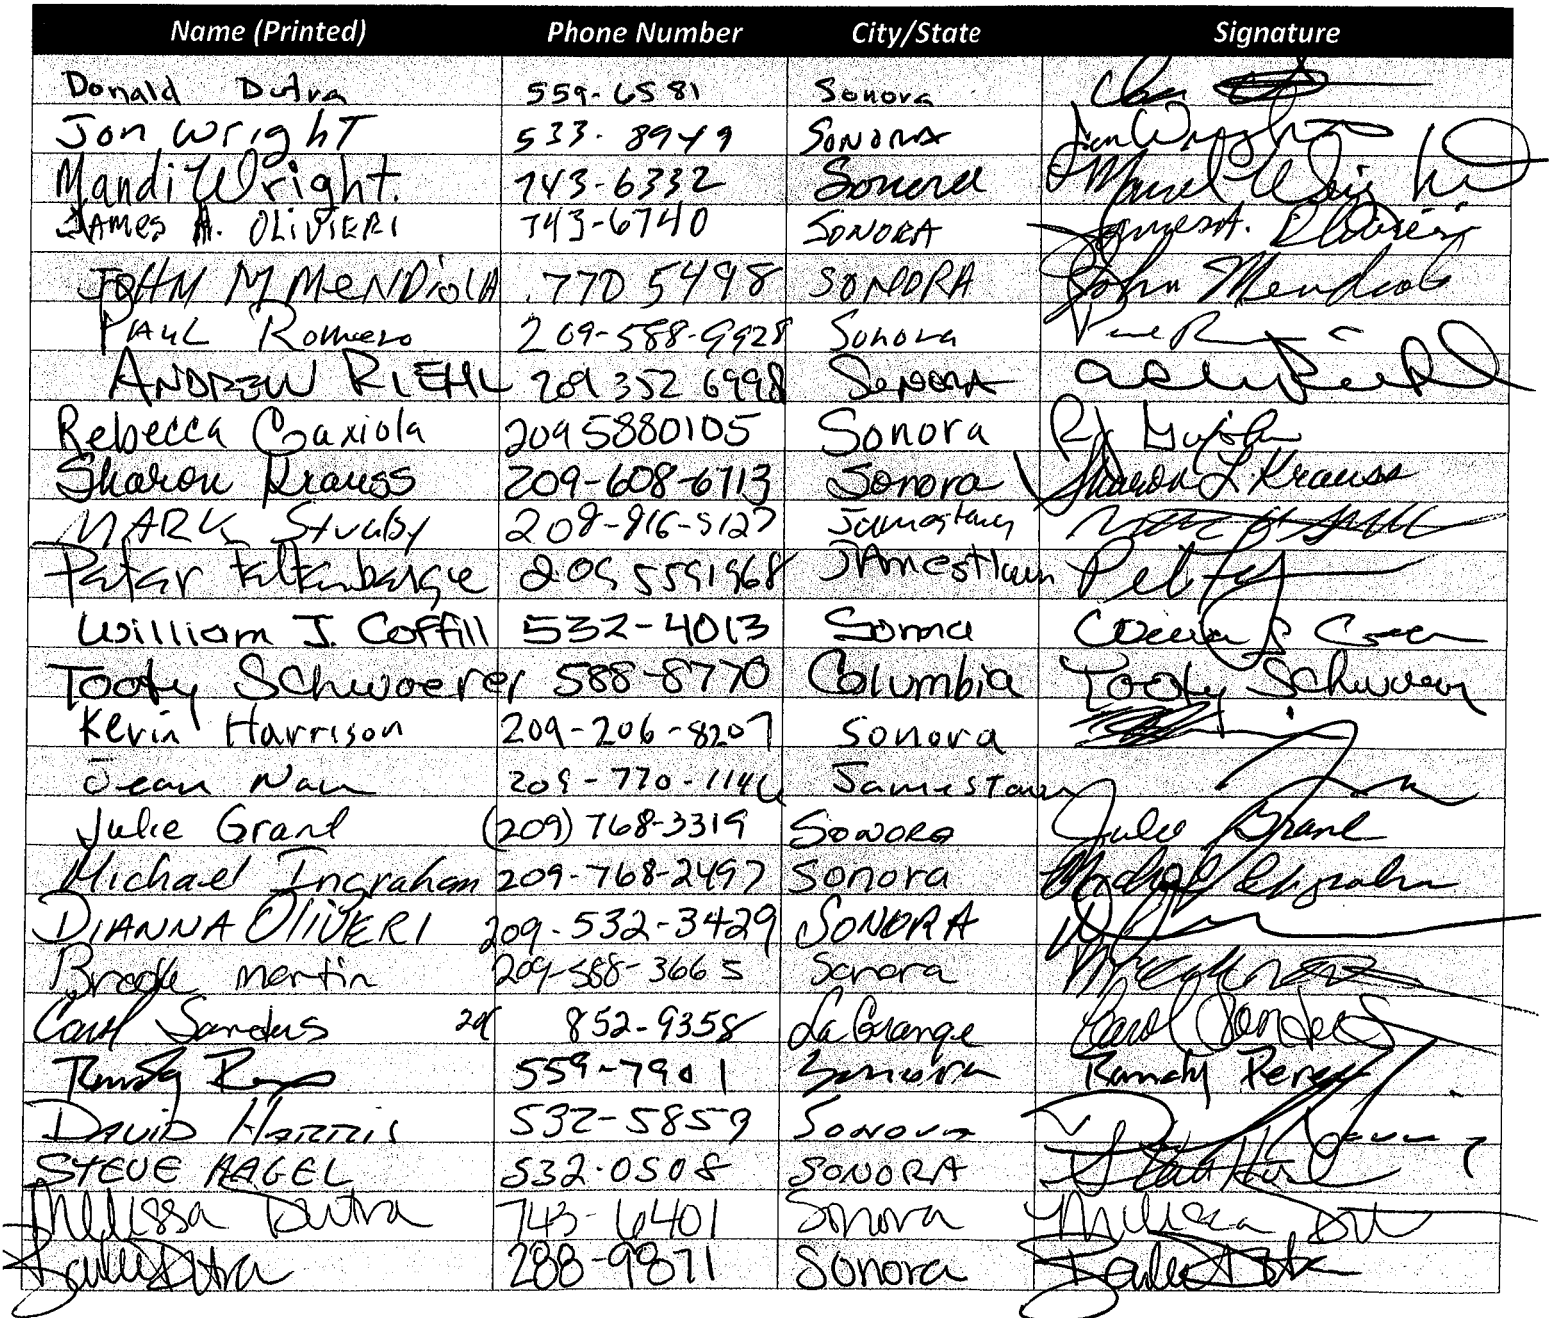 Name (Printed) Phone Number City/State Signature
Donald Dutra 559-6581 Sonora
Jon Wright 533-8949 SONORA Jon Wright
Mandi Wright. 743-6332 Sonora
JAMES A. OLIVIERI 743-6740 SONORA James A. Olivieri
JOHN M MENDiOlA 770 5498 SONORA John Mendiola
PAUL Romero 209-588-9928 Sonora
ANDREW RIEHL 209 352 6998 SONORA
Rebecca Gaxiola 209 5880105 Sonora
Sharon Krauss 209-608-6713 Sonora Sharon L. Krauss
MARK Stuby 209-916-5127 Jamestown
Peter 209 5591968 JAmestown
William J. Coffill 532-4013 Sonora
Tooty Schwoerer 588-8770 Columbia Tooty Schwoerer
Kevin Harrison 209-206-8207 Sonora
Jean Nau 209-770-114 Jamestown
Julie Grant (209) 768-3319 SONORA Julie Grant
Michael Ingraham 209-768-2497 Sonora Michael Ingraham
DIANNA OliVIERI 209-532-3429 SONORA
Brooke martin 209-588-3665 Sonora
Carol Sanders 209 852-9358 La Grange Carol Sanders
559-7901 Sonora Randy Perez
DAVID HARRIS 532-5859 Sonora
STEVE HAGEL 532-0508 SONORA
Melissa Dutra 743-6401 Sonora Melissa
Dutra 288-9871 Sonora